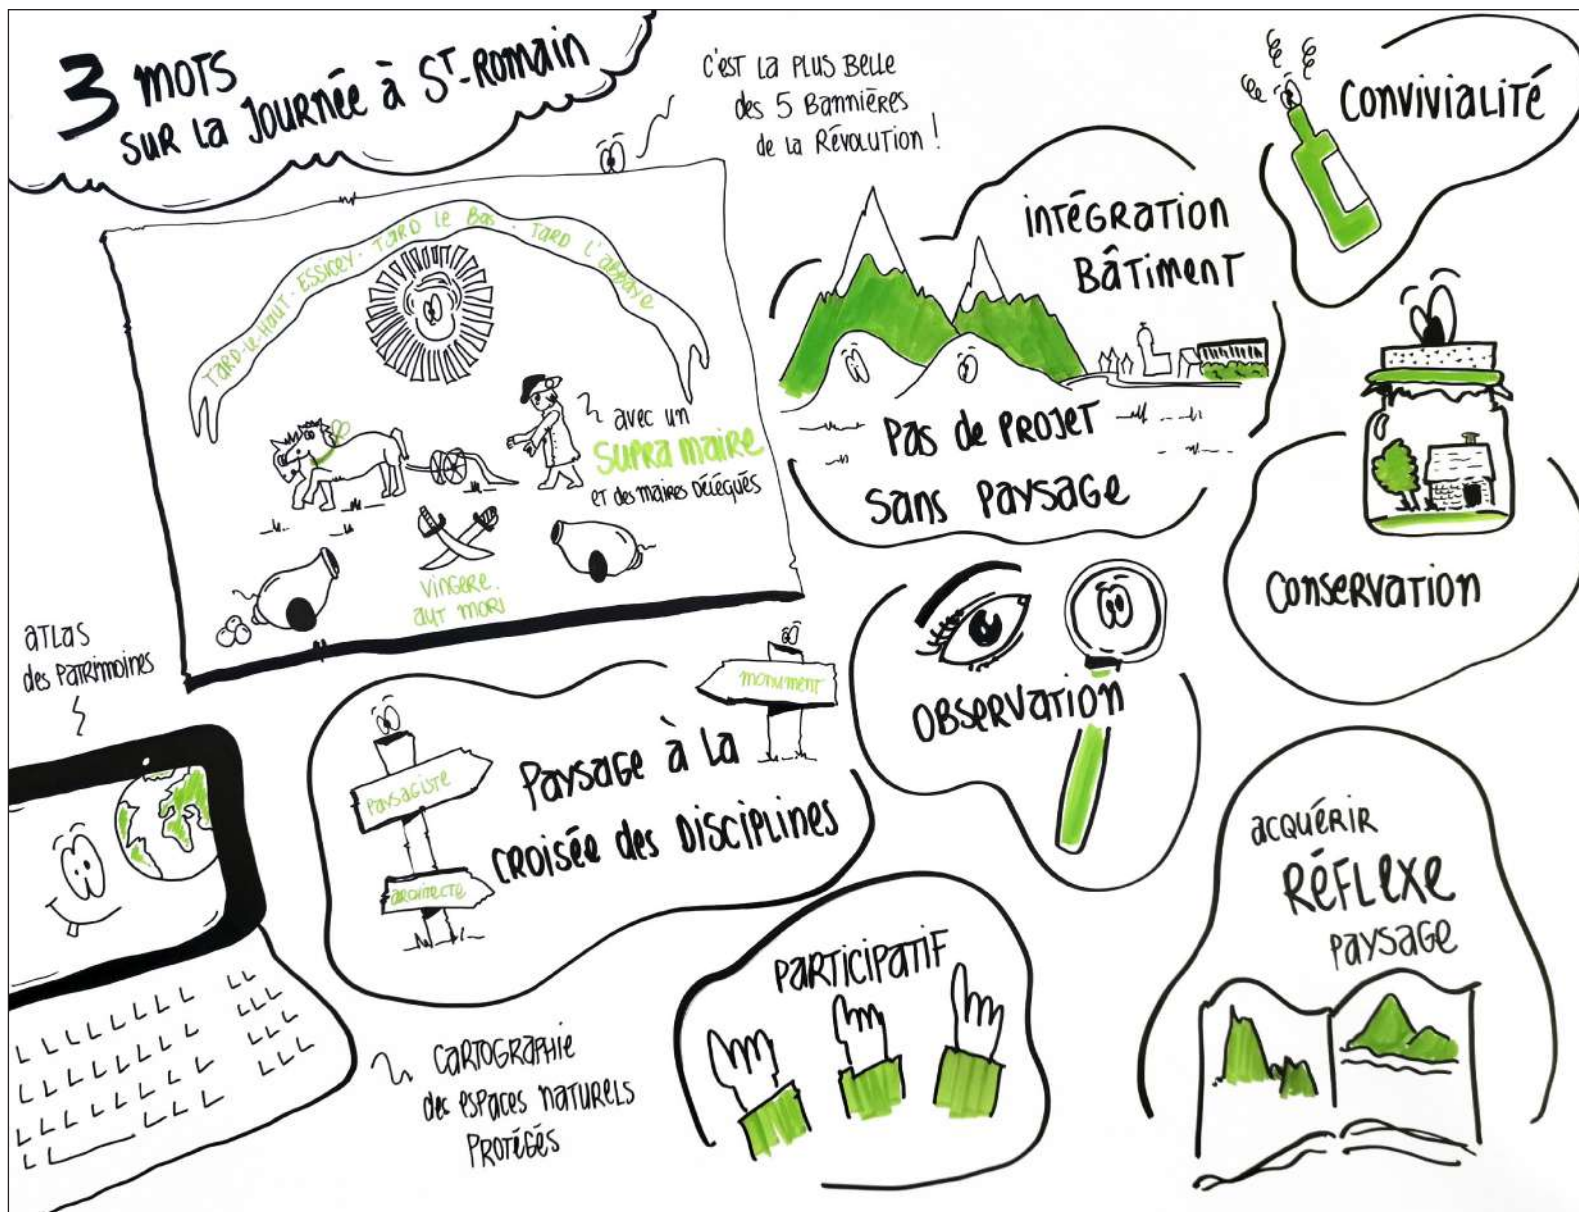 3 mots
sur la journée à St-Romain
c'est la plus belle
des 5 bannières
de la Révolution !
Tard-le-Haut. Essicey. Tard le Bas. Tard l'abbaye
avec un
supra maire
et des maires délégués
vingere.
aut mori
intégration
bâtiment
Pas de projet
sans paysage
convivialité
conservation
atlas
des patrimoines
monument
paysagiste
architecte
Paysage à la
croisée des disciplines
observation
acquérir
réflexe
paysage
participatif
cartographie
des espaces naturels
protégés